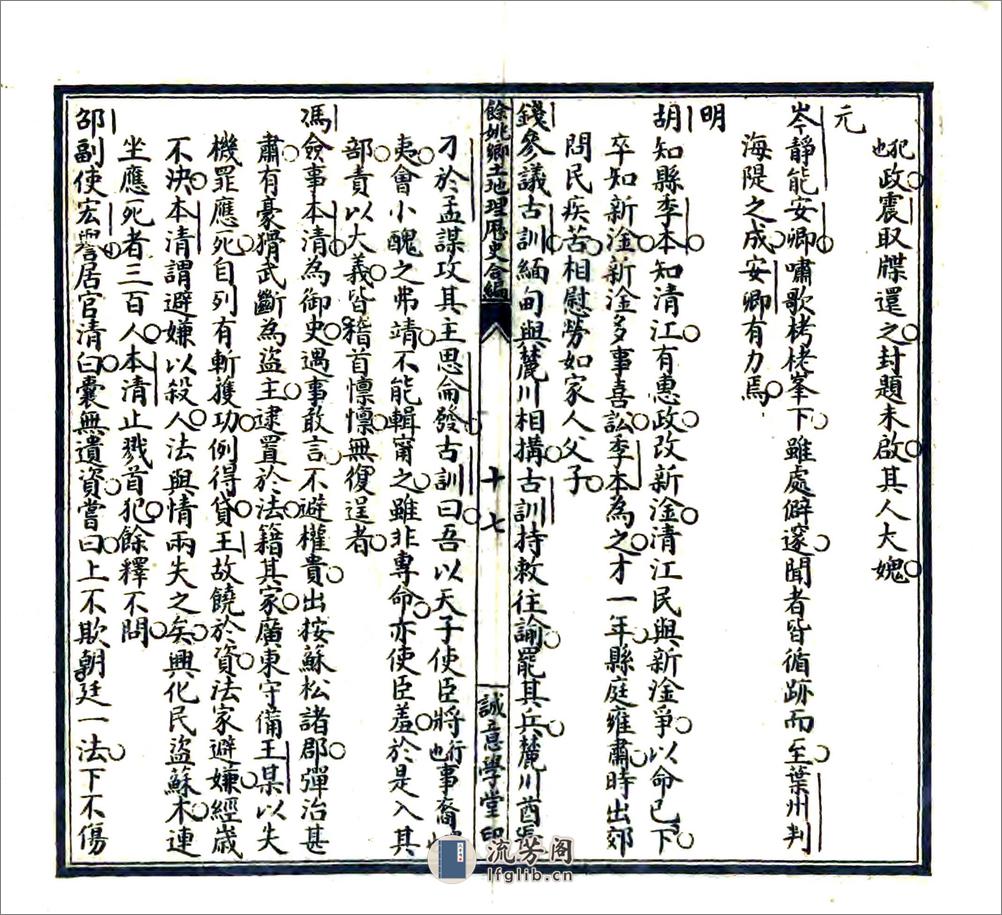 犯也政震取牒還之封題未啟其人大媿
元
岑靜能安卿嘯歌栲栳峯下雖處僻邃聞者皆循跡而至葉州判
海隄之成安卿有力焉
明
胡知縣季本知清江有惠政改新淦清江民與新淦爭以命已下
卒知新淦新淦多事喜訟季本為之才一年縣庭雍肅時出郊
問民疾苦相慰勞如家人父子
錢參議古訓緬甸與麓川相搆古訓持敕往諭罷其兵麓川酋
餘姚鄉土地理歷史合編
十七
誠意學堂印
刁於孟謀攻其主思侖發古訓曰吾以天子使臣將行也事裔
夷會小醜之弗靖不能輯甯之雖非專命亦使臣羞於是入其
部責以大義皆稽首懍懍無復逞者
馮僉事本清為御史遇事敢言不避權貴出按蘇松諸郡彈治甚
肅有豪猾武斷為盜主逮置於法籍其家廣東守備王某以失
機罪應死自列有斬獲功例得貸王故饒於資法家避嫌經歲
不決本清謂避嫌以殺人法與情兩失之矣興化民盜蘇木連
坐應死者三百人本清止戮首犯餘釋不問
邵副使宏譽居官清白囊無遺資嘗曰上不欺朝廷一法下不傷
流芳阁
lfglib.cn